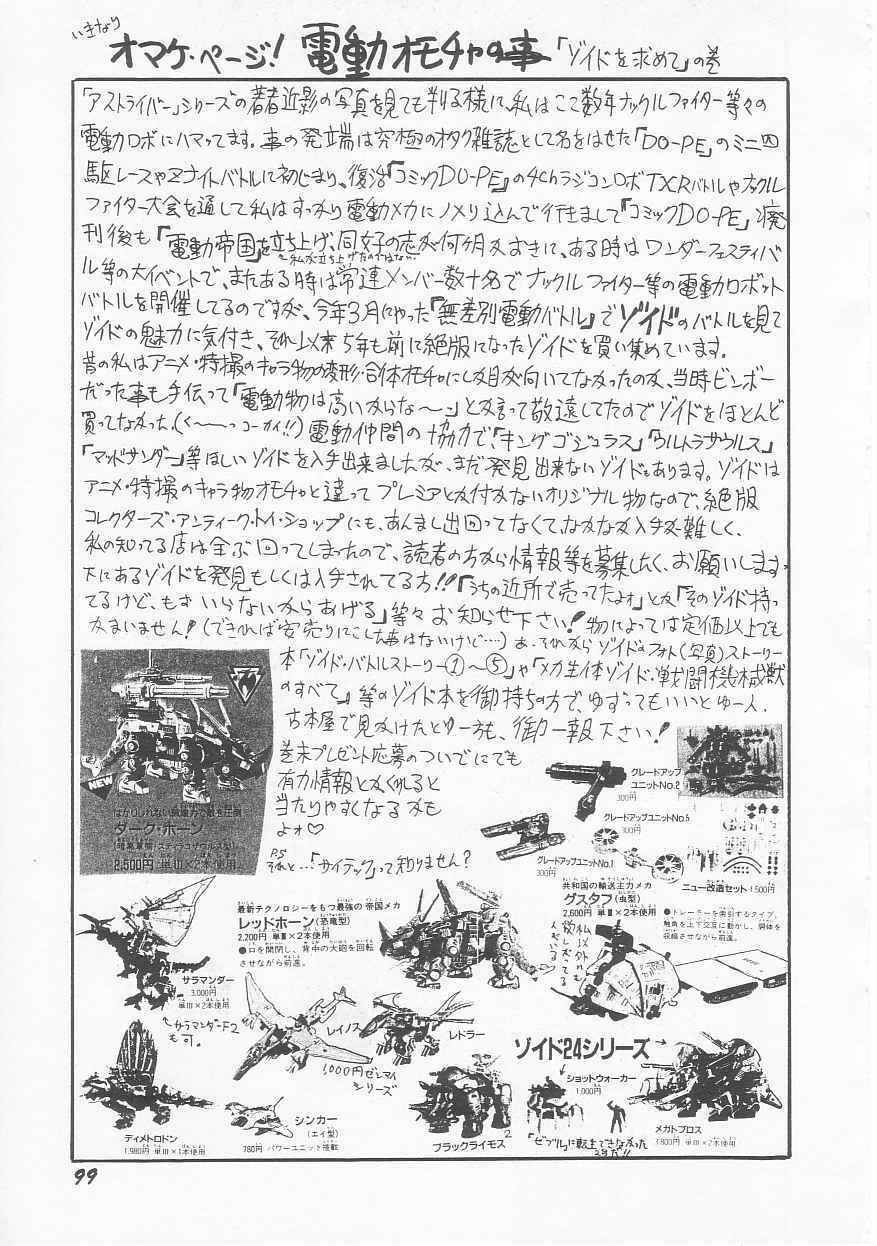 いきなり
オマケ・ページ! 電動オモチャの事「ゾイドを求めて」の巻
「アストライバー」シリーズの著者近影の写真を見ても判る様に、私はここ数年ナックルファイター等々の
電動ロボにハマッてます。事の発端は究極のオタク雑誌として名をはせた「DO-PE」のミニ四
駆レースやZナイトバトルに初じまり、復活『コミックDO-PE』の4chラジコンロボTXRバトルやナックル
ファイター大会を通して私はすっかり電動メカにノメり込んで行きまして『コミックDO-PE』廃
刊後も『電動帝国』を立ち上げ、同好の志が何ヶ月かおきに、ある時はワンダーフェスティバ
↑私が立ち上げたのではない
ル等の大イベントで、またある時は常連メンバー数十名でナックルファイター等の電動ロボット
バトルを開催してるのですが、今年3月にやった『無差別電動バトル』でゾイドのバトルを見て
ゾイドの魅力に気付き、それ以来5年も前に絶版になったゾイドを買い集めています。
昔の私はアニメ・特撮のキャラ物の変形・合体オモチャにしか目が向いてなかったのと、当時ビンボー
だった事も手伝って「電動物は高いからな〜」とか言って敬遠してたのでゾイドをほとんど
買ってなかった。(く〜〜っコーカイ!!) 電動仲間の協力で、「キングゴジュラス」「ウルトラザウルス」
「マッドサンダー」等ほしいゾイドを入手出来ましたが、まだ発見出来ないゾイドもあります。ゾイドは
アニメ・特撮のキャラ物オモチャと違ってプレミアとか付かないオリジナル物なので、絶版
コレクターズ・アンティーク・トイ・ショップにも、あんまし出回ってなくて、なかなか入手が難しく、
私の知ってる店は全ぶ回ってしまったので、読者の方から情報等を募集したく、お願いします。
下にあるゾイドを発見もしくは入手されてる方!!「うちの近所で売ってたよォ」とか「そのゾイド持っ
てるけど、もぉいらないからあげる」等々お知らせ下さい! 物によっては定価以上でも
かまいません!(できれば安売りにこした事はないけど…) あ、それからゾイドのフォト(写真)ストーリー
本「ゾイド・バトルストーリー①〜⑤」や「メカ生体ゾイド・戦闘機械獣
のすべて」等のゾイド本を御持ちの方で、ゆずってもいいとゆー人、
古本屋で見かけたとゆー方も、御一報下さい!
巻末プレゼント応募のついでにでも
有力情報とかくれると
当たりやすくなるかも
よォ♡
P.S
それと…「サイテック」って知りません?
NEW
はかりしれない破壊力で敵を圧倒
ダーク・ホーン
(暗黒軍団・スティラコザウルス型)
2,500円 単III×2本使用
グレードアップ
ユニットNo.2
300円
グレードアップユニットNo.5
300円
グレードアップユニットNo.1
300円
ニュー改造セット 1,500円
最新テクノロジーをもつ最強の帝国メカ
レッドホーン(恐竜型)
2,200円 単III×2本使用
●口を開閉し、背中の大砲を回転
させながら前進。
共和国の輸送主力メカ
グスタフ(虫型)
2,600円 単III×2本使用
●トレーラーを索引するタイプ。
触角を上下交互に動かし、胴体を
収縮させながら前進。
私以外にも
欲しがってる
人がいる
サラマンダー
3,000円
単III×2本使用
↑サラマンダーF2
も可。
レイノス
レドラー
1,000円ゼンマイ
シリーズ
ゾイド24シリーズ
ショットウォーカー
1,000円
メガトプロス
1,800円 単III×2本使用
ディメトロドン
1,980円 単III×1本使用
シンカー
(エイ型)
780円 パワーユニット搭載
ブラックライモス
99